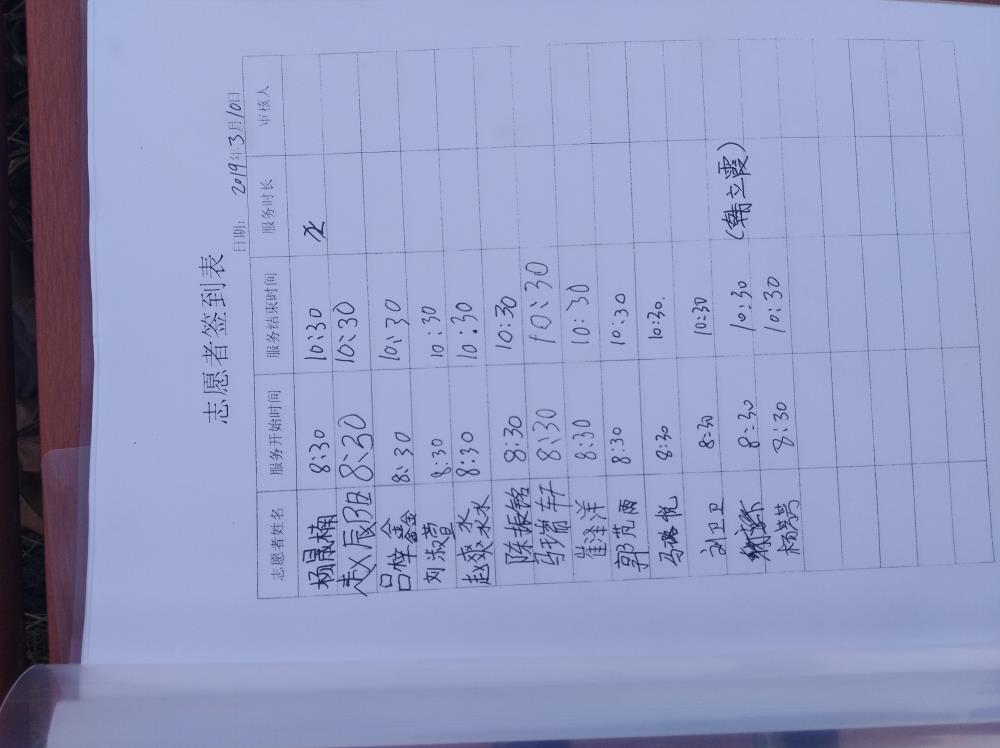 志愿者签到表
日期： 2019年3月10日
志愿者姓名 服务开始时间 服务结束时间 服务时长 审核人
杨晨楠 8:30 10:30
赵辰阳 8:30 10:30
吕梓鑫 8:30 10:30
刘淑萱 8:30 10:30
赵爽淼 8:30 10:30
陈振铭 8:30 10:30
马瑞轩 8:30 10:30
崔泽洋 8:30 10:30
郭芃雨 8:30 10:30
马璐悦 8:30 10:30.
刘卫卫 8:30 10:30
8:30 10:30 (韩立霞)
杨荣芳 8:30 10:30